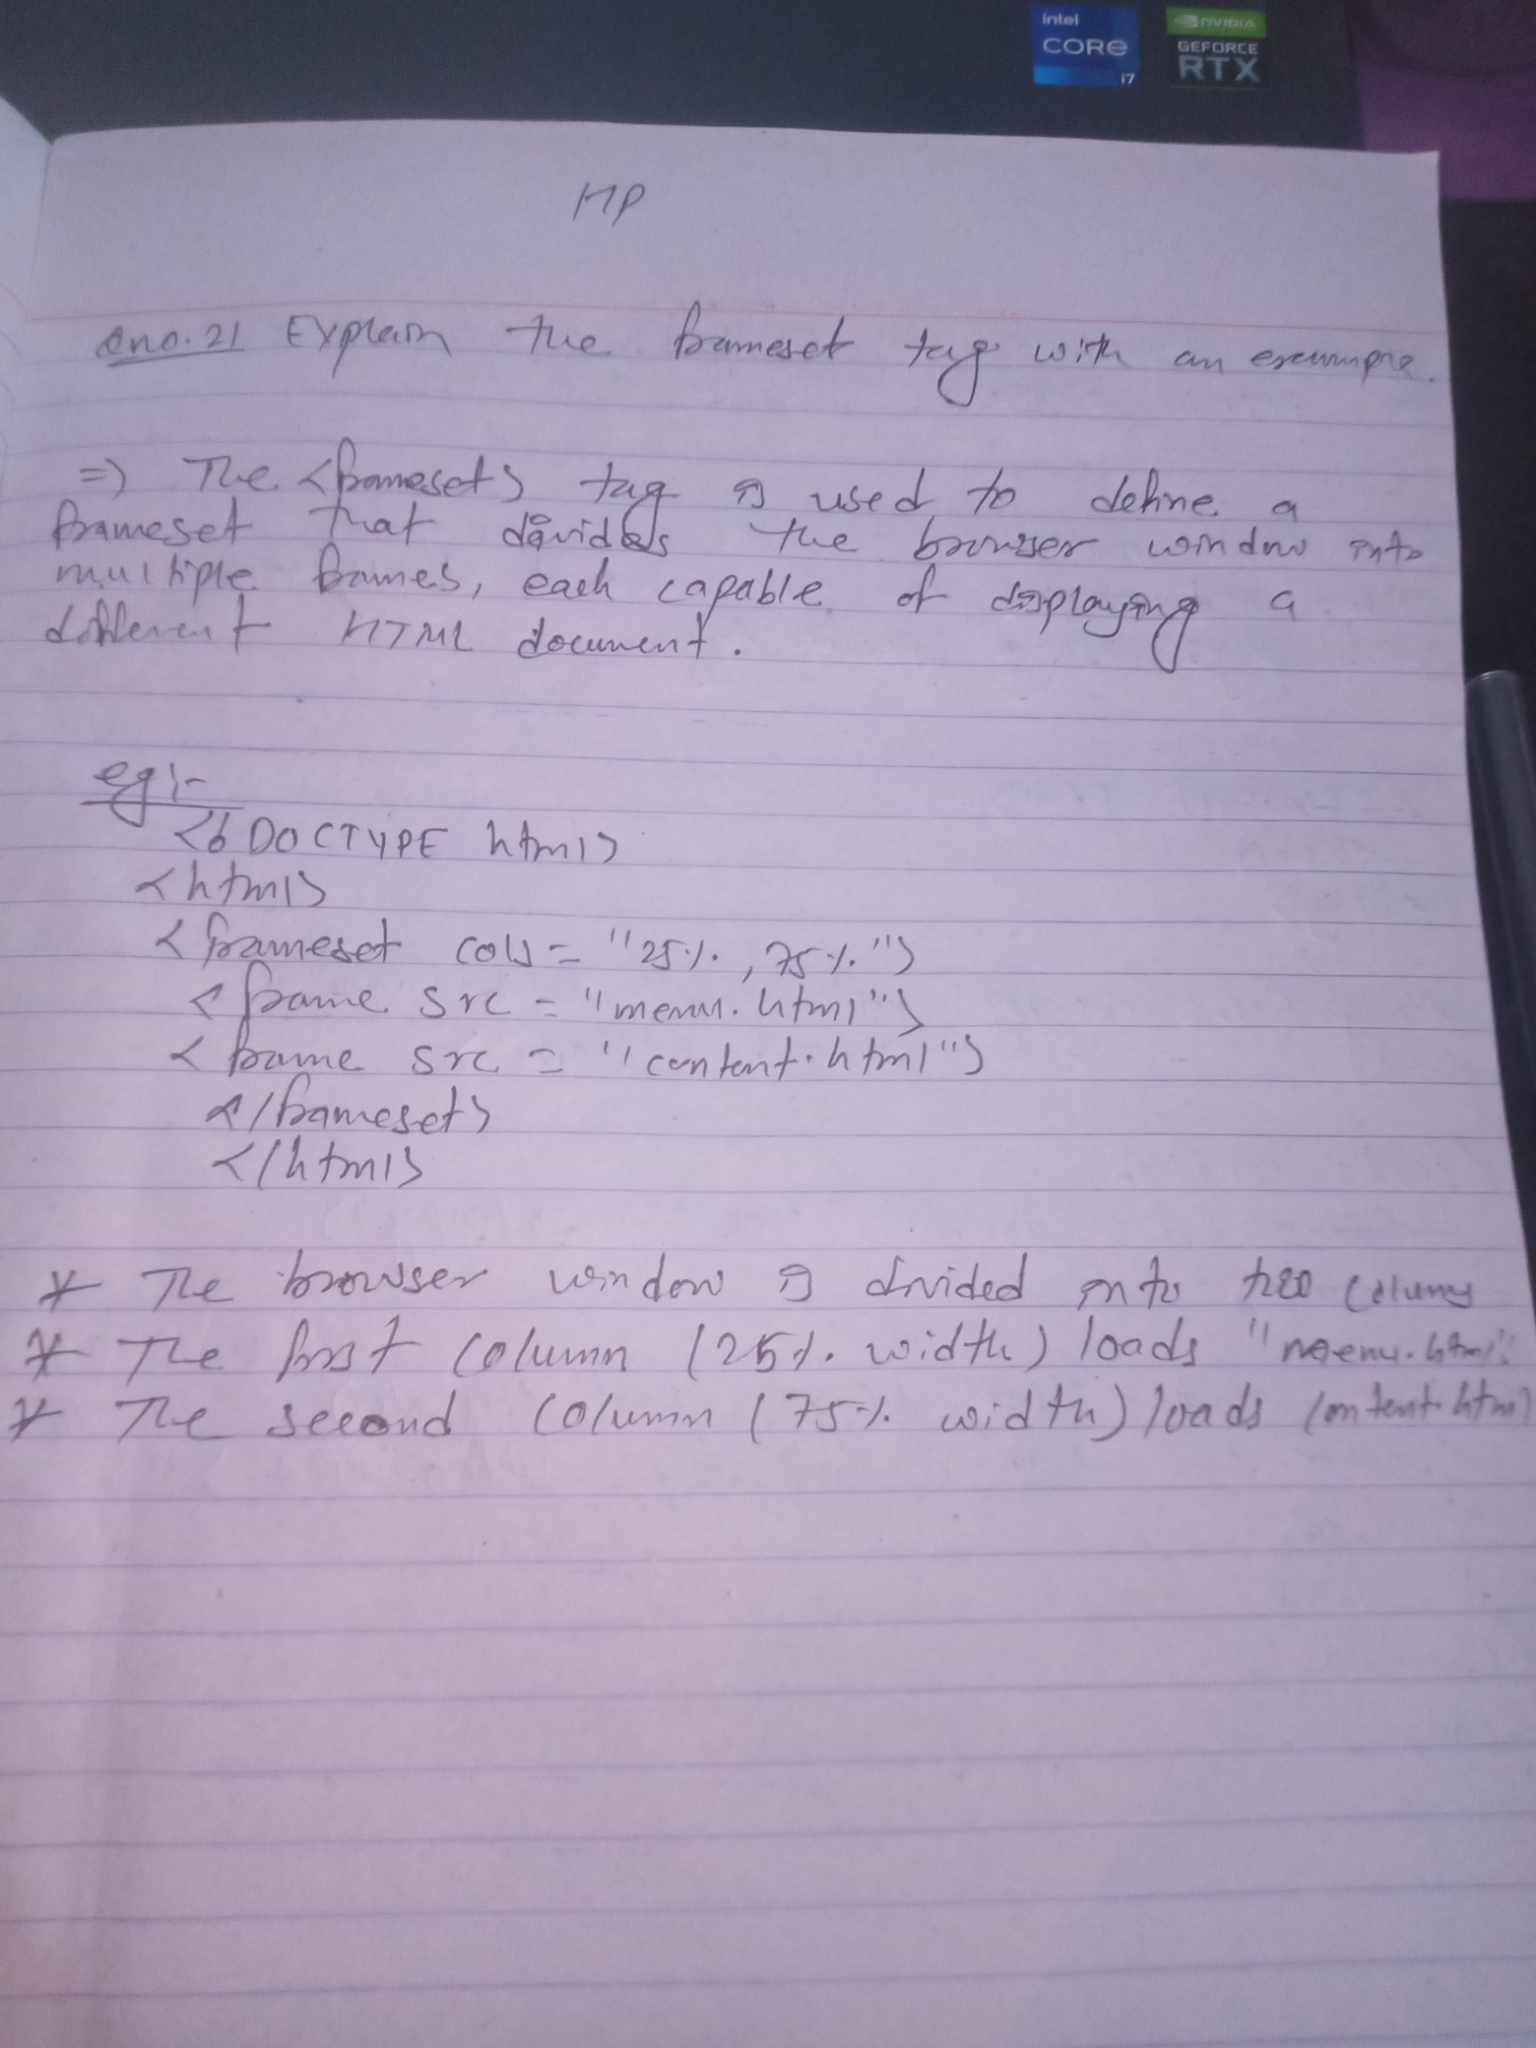 intel
CORE
i7
NVIDIA
GEFORCE
RTX
HP
Qno.21 Explain the frameset tag with an example.
=) The <frameset> tag is used to define a
frameset that divides the browser window into
multiple frames, each capable of displaying a
different HTML document.
eg:-
DOCTYPE html>
<html>
<frameset cols = "25%, 75%">
<frame src = "menu.html">
<frame src = "content.html">
</frameset>
</html>
* The browser window is divided into two columns
* The first column (25% width) loads "menu.html".
* The second column (75% width) loads content.html